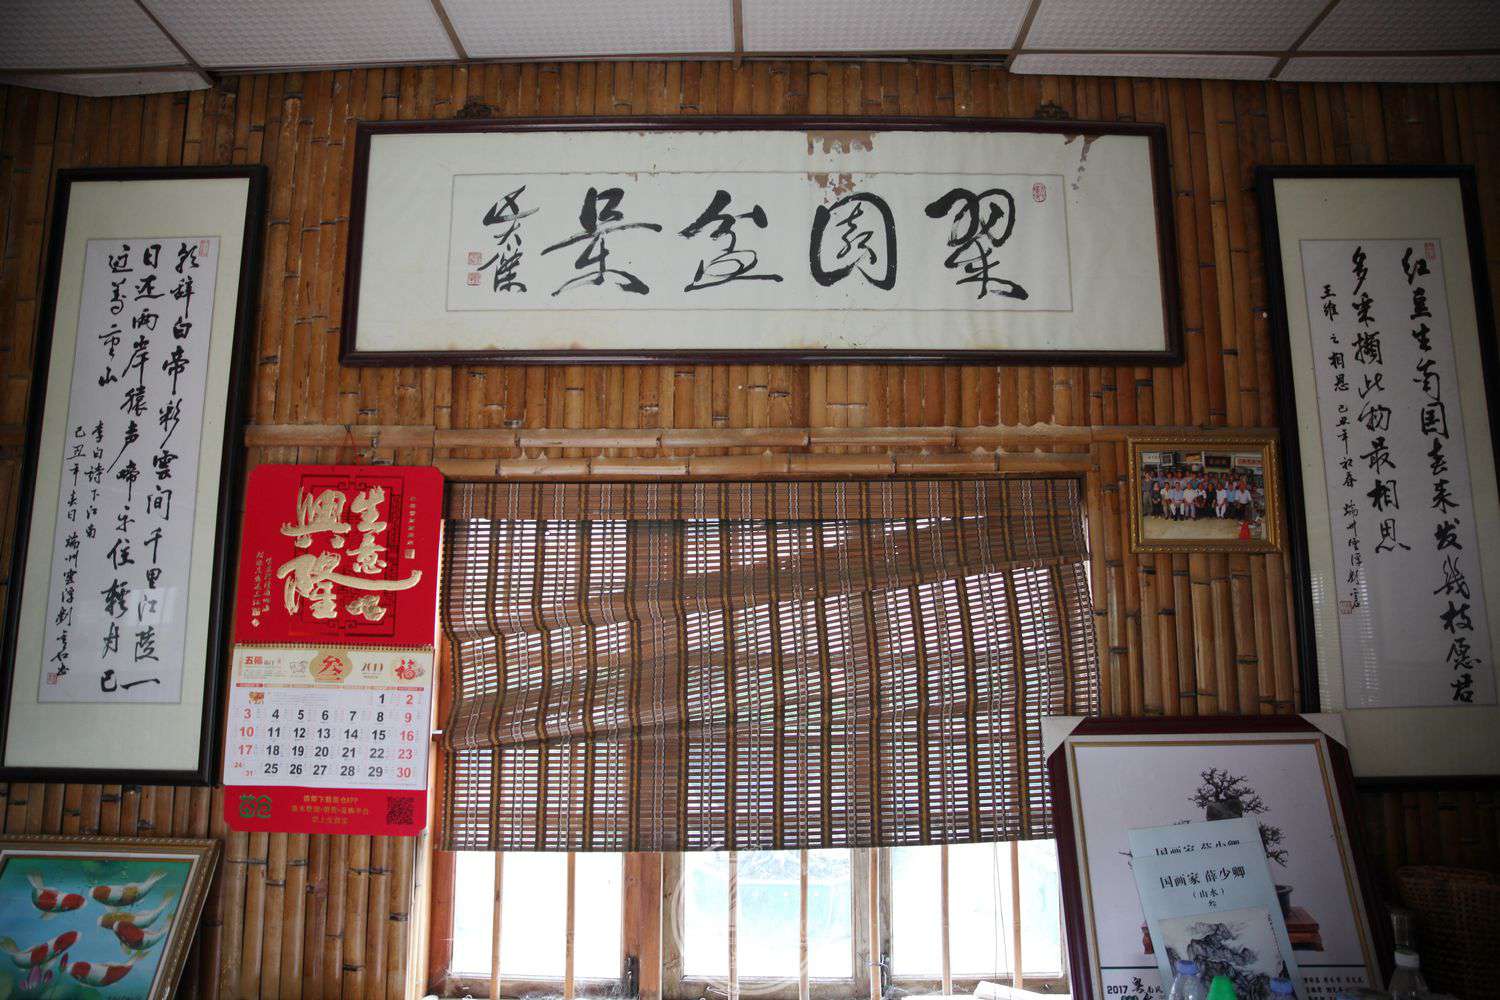 翠園盆景
朝辞白帝彩雲间千里江陵一
日还两岸猿声啼不住轻舟已
过萬重山
李白诗下江南
己丑年春月端州雲浮
红豆生南国春来发幾枝愿君
多采撷此物最相思
王维之相思 己丑年初春 端州
生意
興隆
五福
叁
2019
福
1 2
3 4 5 6 7 8 9
10 11 12 13 14 15 16
17 18 19 20 21 22 23
24 31 25 26 27 28 29 30
国画家 薛少卿
（山水）
叁
2017